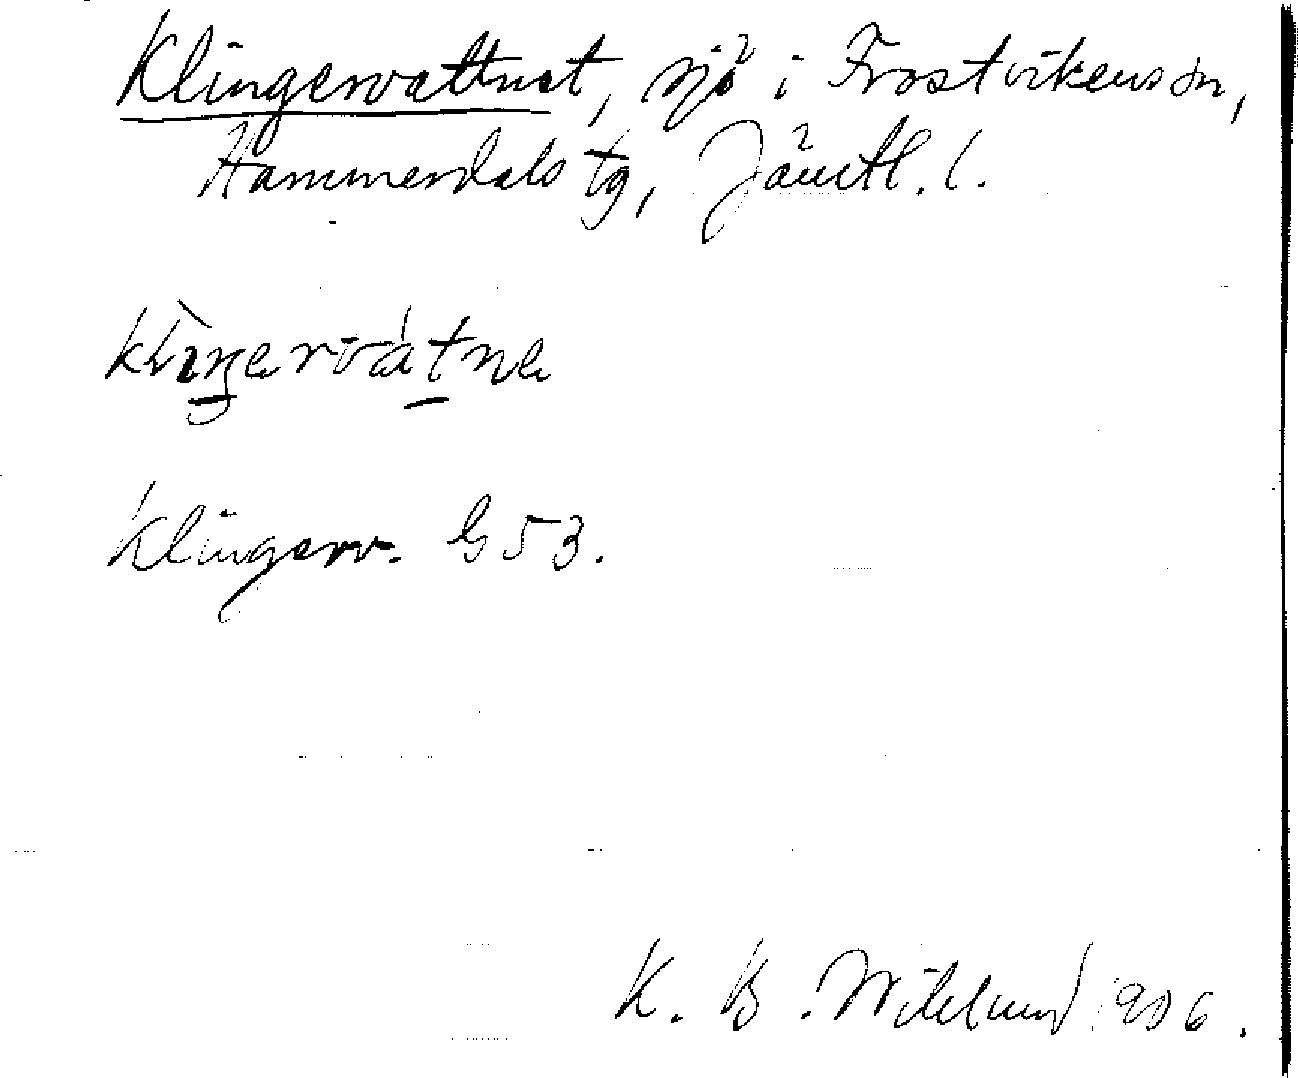 Klingervattnet, sjö i Frostvikens sn,
Hammerdals tg, Jämtl. l.
klìŋervátne
Klingerv. G 53.
K. B. Wiklund 1906.